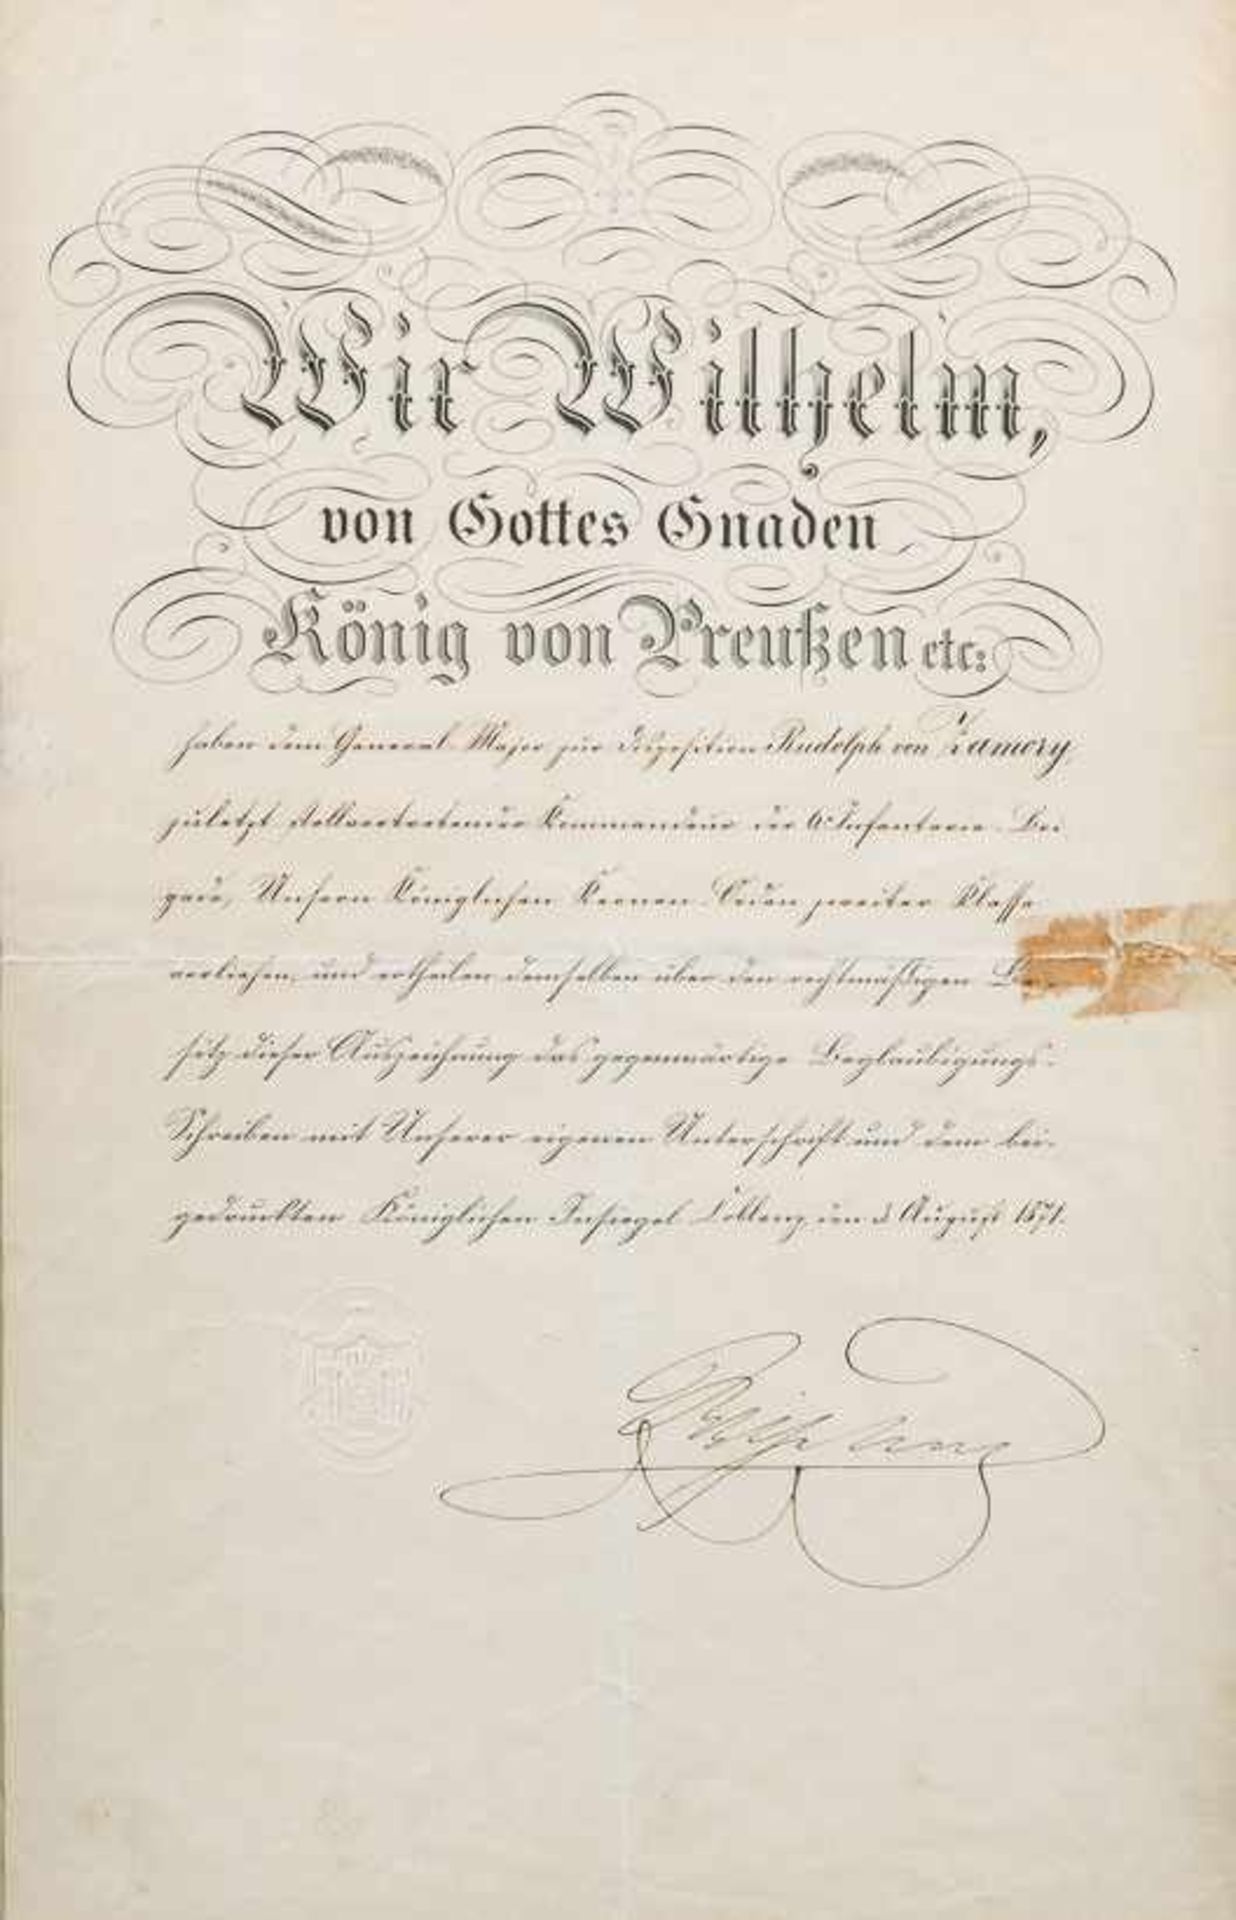 Wir Wilhelm,
von Gottes Gnaden
König von Preußen etc:
haben dem General-Major zur Disposition Rudolph von Zamory,
zuletzt stellvertretender Kommandeur der 6. Infanterie-Bri
gade, Unsern Königlichen Kronen-Orden zweiter Klasse
verliehen, und ertheilen demselben über den rechtmäßigen Be-
sitz dieser Auszeichnung das gegenwärtige Beglaubigungs-
Schreiben mit Unserer eigenen Unterschrift und dem bei-
gedruckten Königlichen Insiegel. Coblenz, den 3 August 1871.
Wilhelm